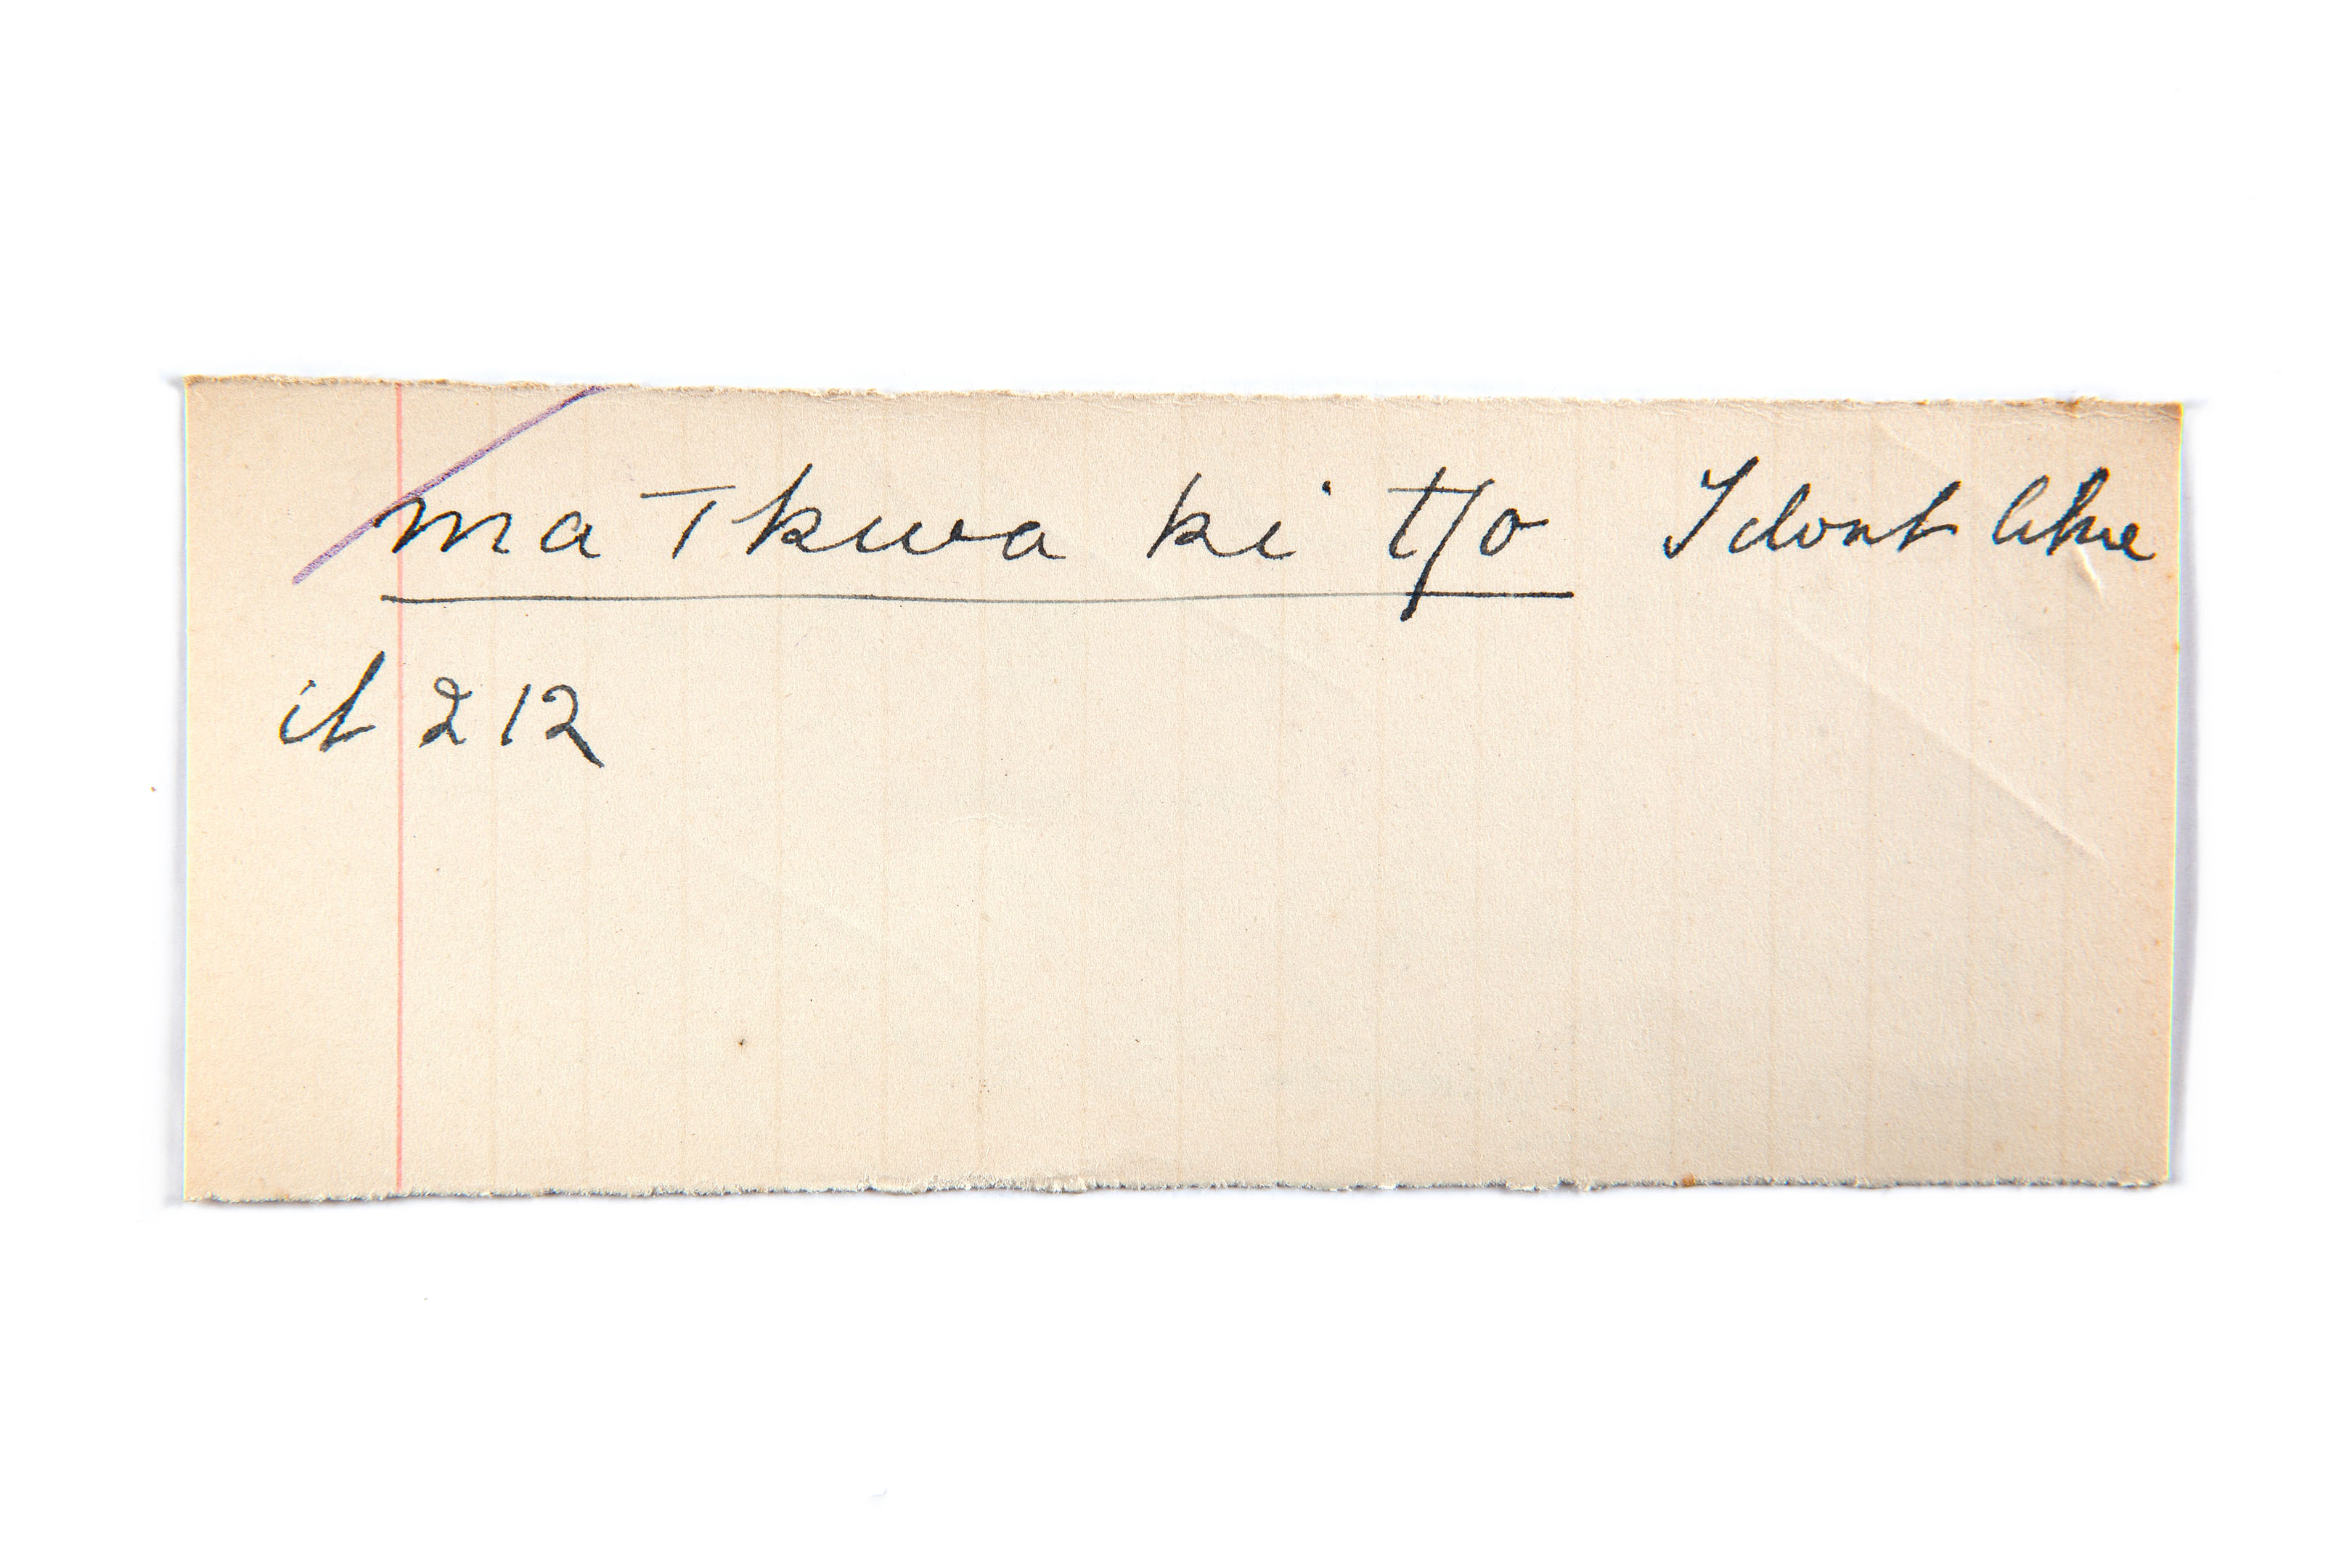 ma Tkwa ki t/o I dont like
it 212